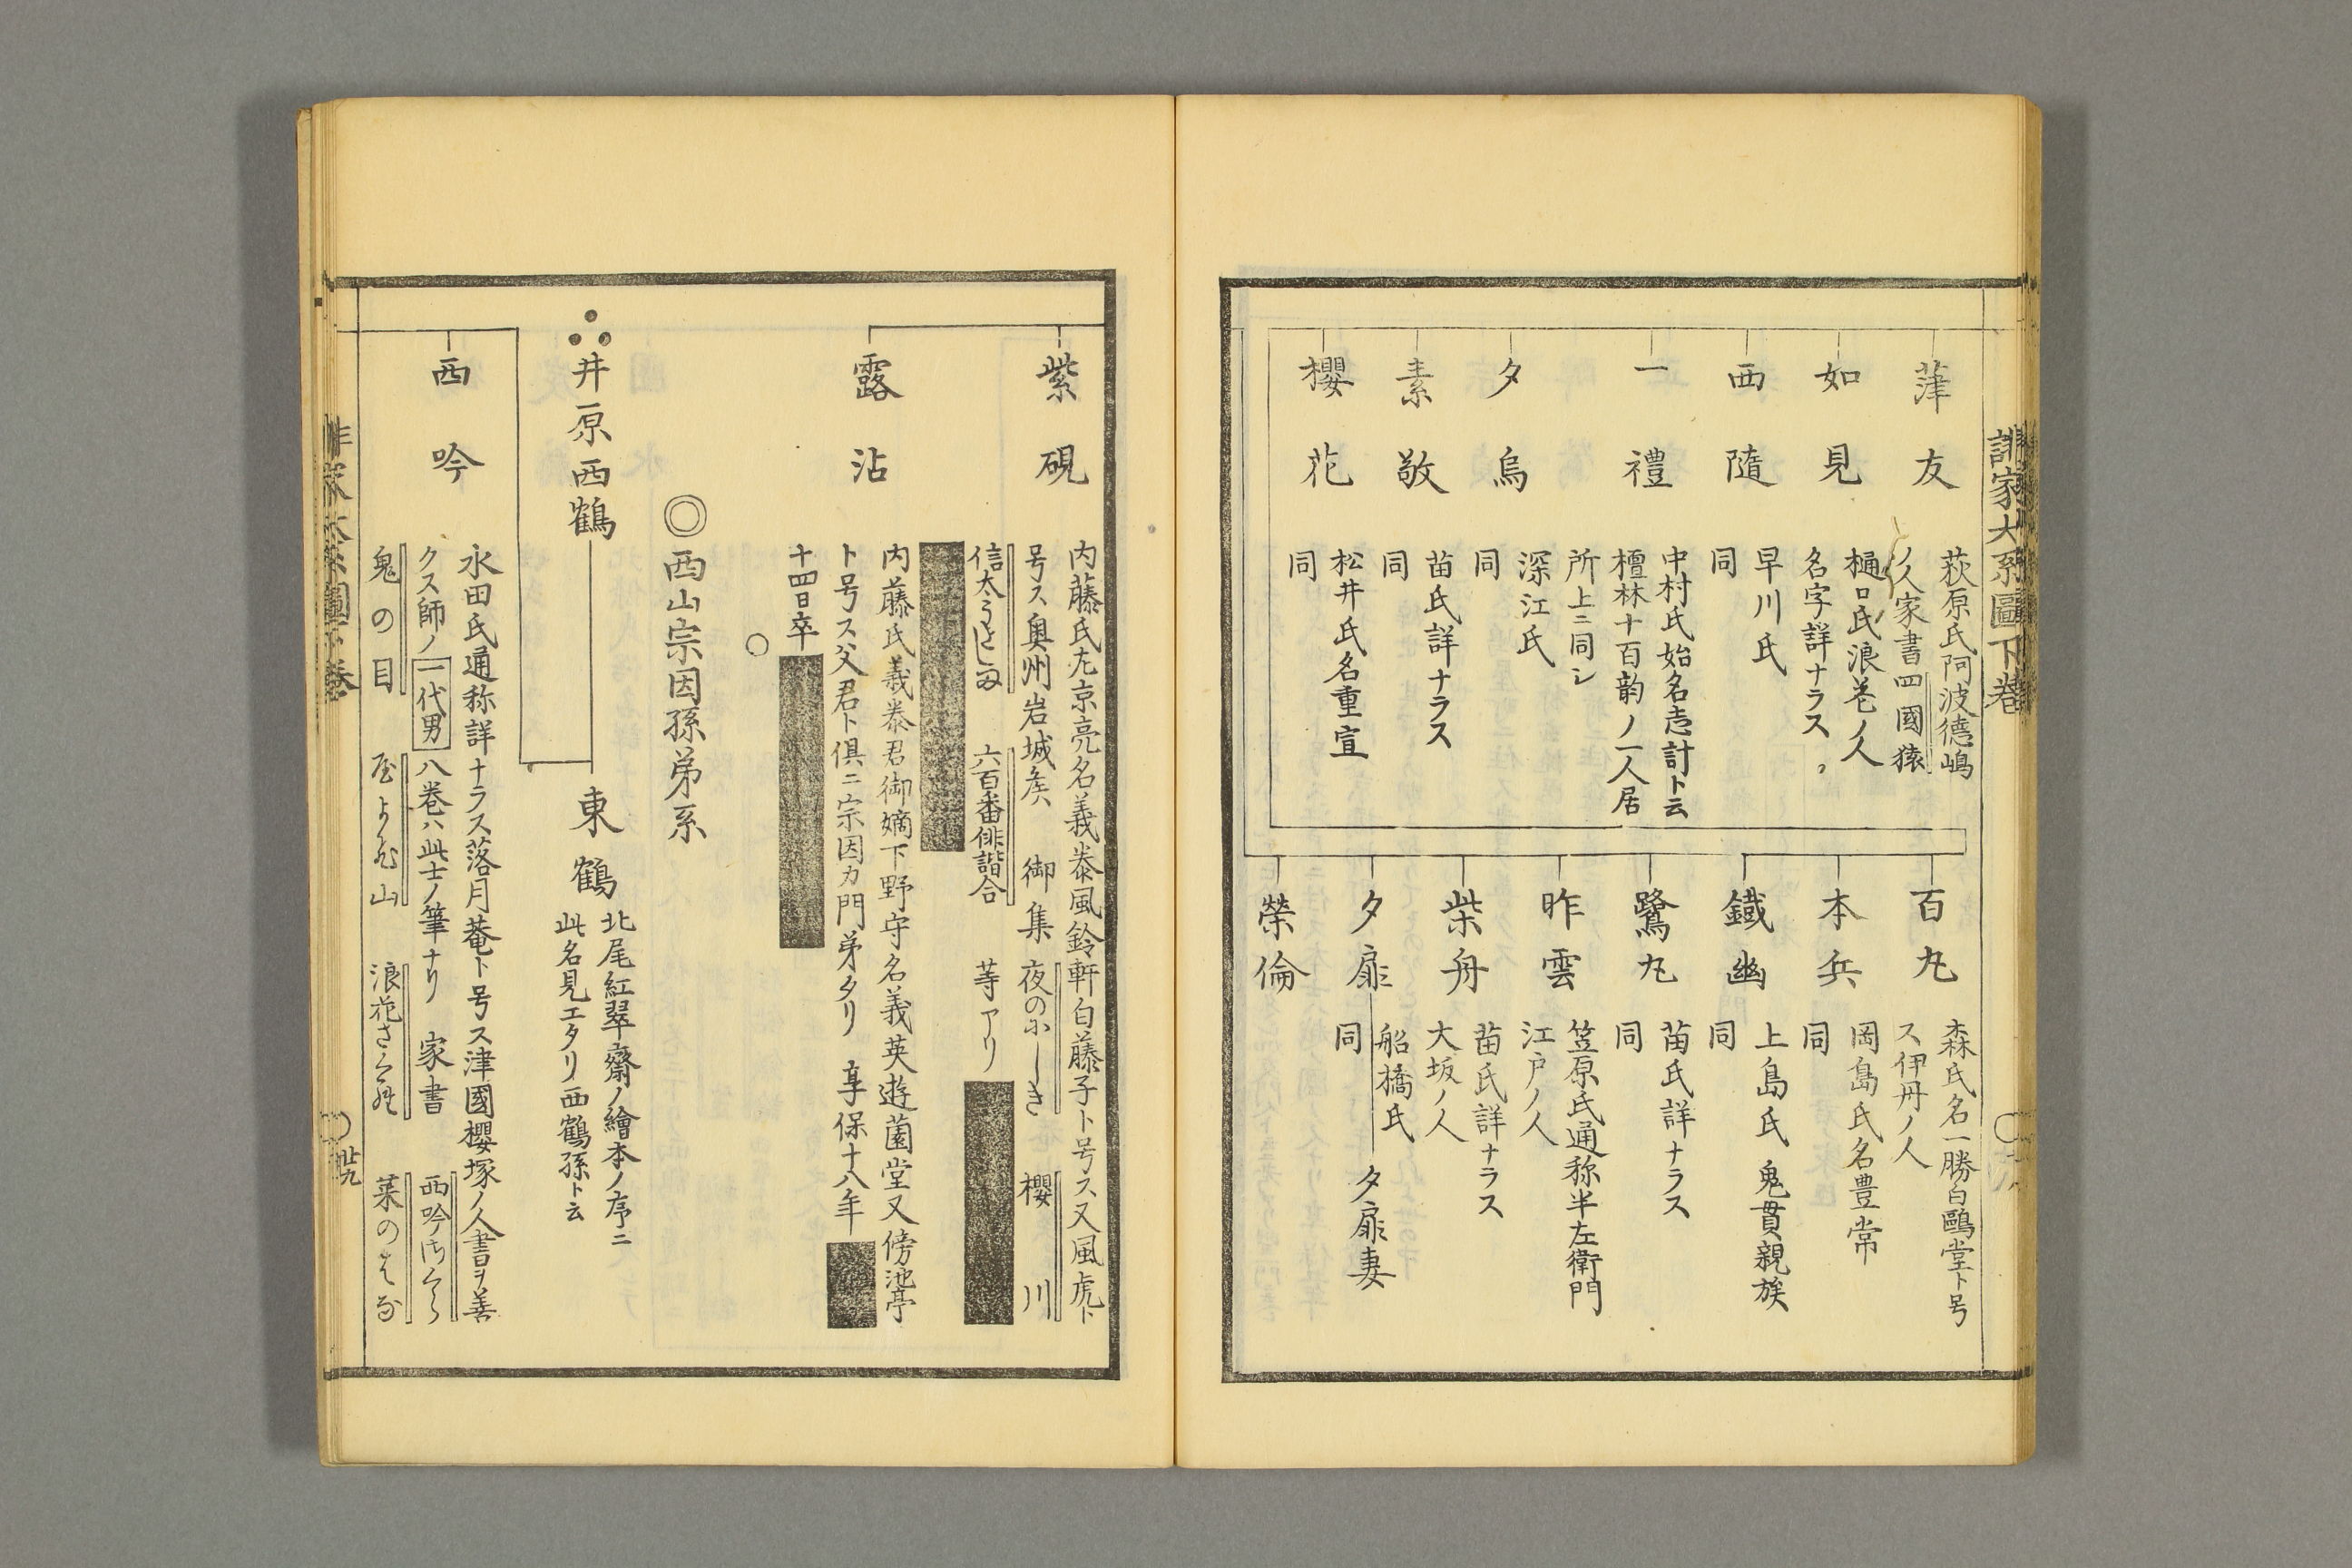 誹家大系圖下巻
萍友
萩原氏阿波徳嶋
ノ人家書四國猿
如見
樋口氏浪花ノ人
名字詳ナラス
西隨
早川氏
同
一禮
中村氏始名志計ト云
檀林十百韵ノ一人居
所上ニ同シ
夕烏
深江氏
同
素敬
苗氏詳ナラス
同
櫻花
松井氏名重宣
同
百丸
森氏名一勝白鷗堂ト号
ス伊丹ノ人
本兵
岡島氏名豊常
同
鐵幽
上島氏 鬼貫親族
同
鷺丸
苗氏詳ナラス
同
昨雲
笠原氏通称半左衛門
江戸ノ人
柴舟
苗氏詳ナラス
大坂ノ人
夕扉
船橋氏
同
夕扉妻
榮倫
紫硯
内藤氏左京亮名義泰風鈴軒白藤子ト号ス又風虎ト
号ス奥州岩城矦 御集 夜のにしき 櫻川
信太のうきしま 六百番俳諧合 等アリ
露沾
内藤氏義泰君御嫡下野守名義英遊園堂又傍池亭
ト号ス父君ト倶ニ宗因カ門弟タリ 享保十八年
十四日卒
○
◎西山宗因孫弟系
井原西鶴
東鶴
北尾紅翠齋ノ繪本ノ序ニ
此名見エタリ西鶴孫ト云
西吟
水田氏通称詳ナラス落月菴ト号ス津國櫻塚ノ人書ヲ善
クス師ノ一代男八巻ハ此士ノ筆ナリ 家書 西吟さくら
鬼の目 浪花さくら 菜のはな
誹家大系圖下巻
○廿九